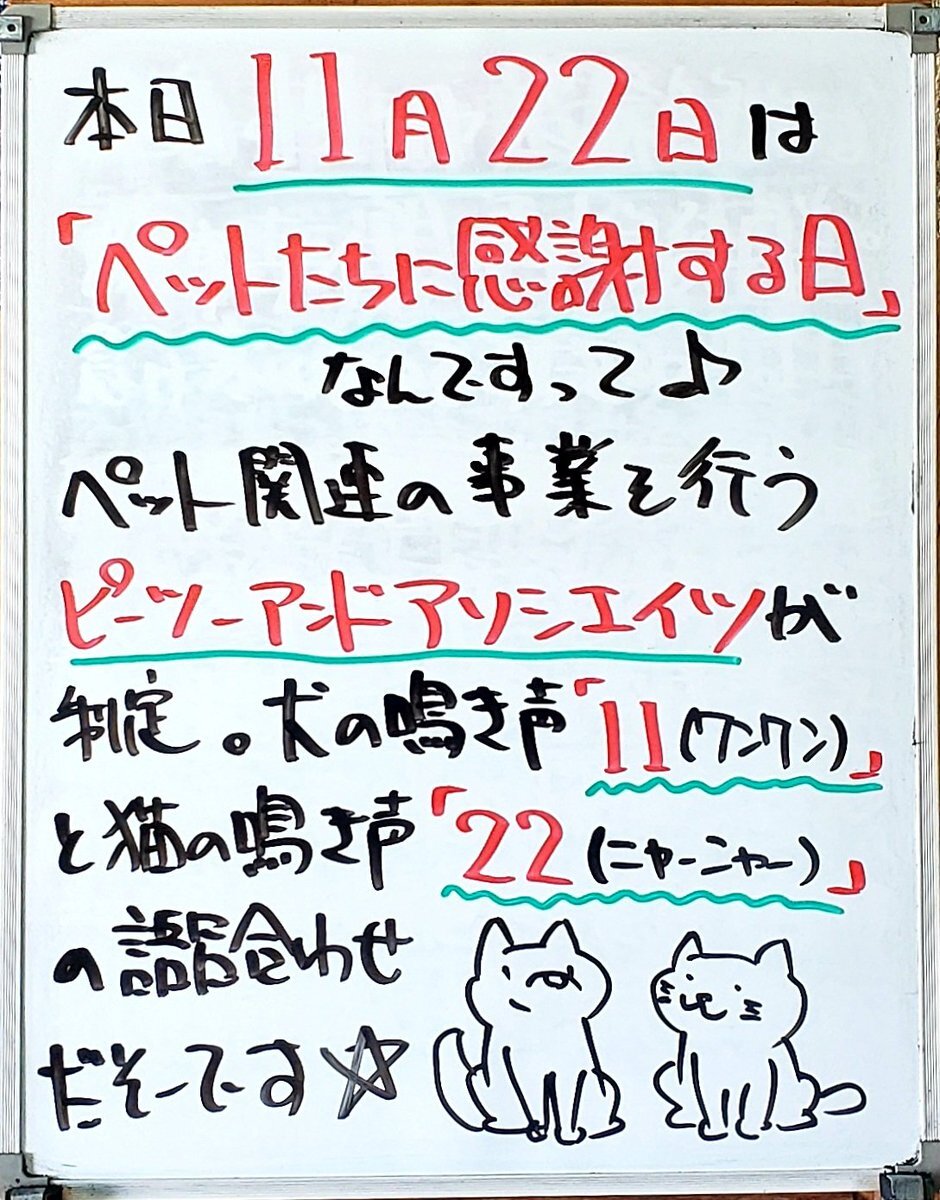 本日11月22日は
「ペットたちに感謝する日」
なんですって♪
ペット関連の事業を行う
ピーツーアンドアソシエイツが
制定。犬の鳴き声「11(ワンワン)」
と猫の鳴き声「22(ニャーニャー)」
の語呂合わせ
だそーです☆